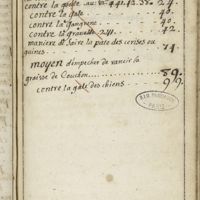 contre la goutte au nos 41.43.38... 24.
contre la gale ... 40.
contre la gangrene ... 40.
contre la gravelle 241. ... 42.
maniere de faire la pate des cerises ou
guines ... 71.
moyen d'empecher de rancir la
graisse de Couchon ... 89.
contre la gale des chiens ... 99.
PARIS